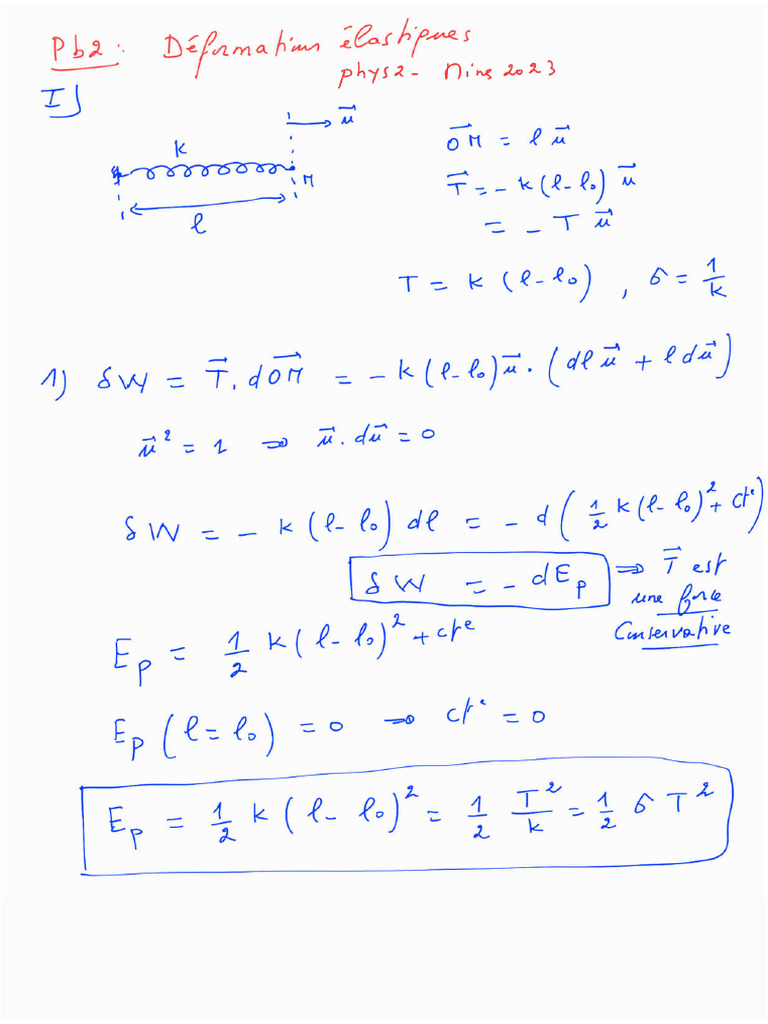 Pb2 : Déformations élastiques
phys2 - Mines 2023
I)
k
u⃗
M
l
OM⃗ = l u⃗
T⃗ = - k (l - l₀) u⃗
= - T u⃗
T = k (l - l₀) , σ = 1/k
1) δW = T⃗ . dOM⃗ = - k (l - l₀) u⃗ . (dl u⃗ + l du⃗)
u⃗² = 1 ⇒ u⃗ . du⃗ = 0
δW = - k (l - l₀) dl = - d ( 1/2 k (l - l₀)² + cte )
δW = - dEp ⇒ T⃗ est
une force
Conservative
Ep = 1/2 k (l - l₀)² + cte
Ep (l = l₀) = 0 ⇒ cte = 0
Ep = 1/2 k (l - l₀)² = 1/2 T²/k = 1/2 σ T²